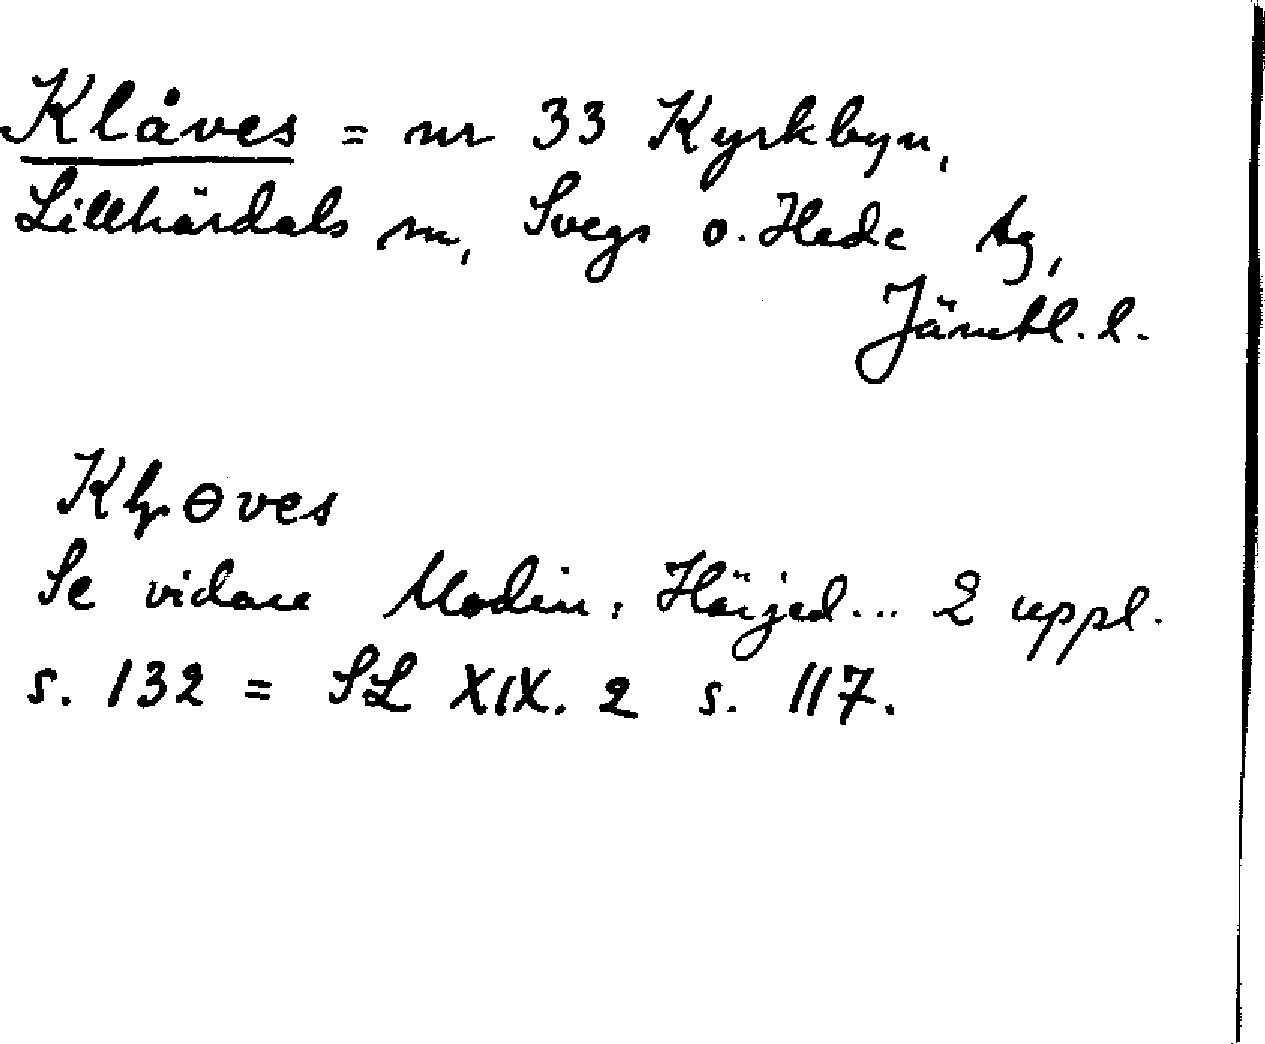 Klåves = nr 33 Kyrkbyn,
Lillhärdals sn, Svegs o. Hede tg,
Jämtl. l.
Se vidare Modin, Härjed... 2 uppl.
s. 132 = SL XIX. 2 s. 117.